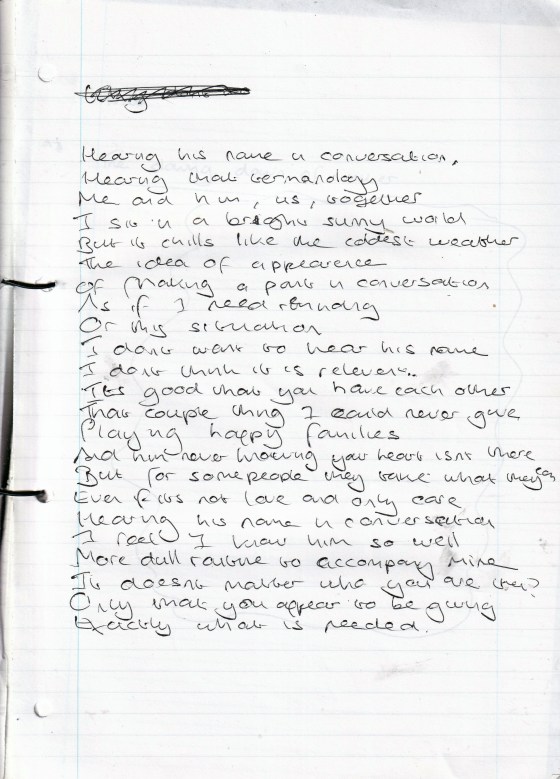 Hearing his name in conversation,
Hearing that termanology
Me and him, us, together
I sit in a bright sunny world
But it chills like the coldest weather
The idea of appearence
Of making a point in conversation
As if I need reminding
Or my situation
I dont want to hear his name
I dont think it is relevent..
Its good that you have each other
That couple thing I could never give
Playing happy families
And him never knowing your heart isnt there
But for somepeople they take what they can
Even if its not love and only care
Hearing his name in conversation
I feel I know him so well
More dull routine to accompany mine
It doesnt matter who you are
Only that you appear to be giving
Exactly what is needed.